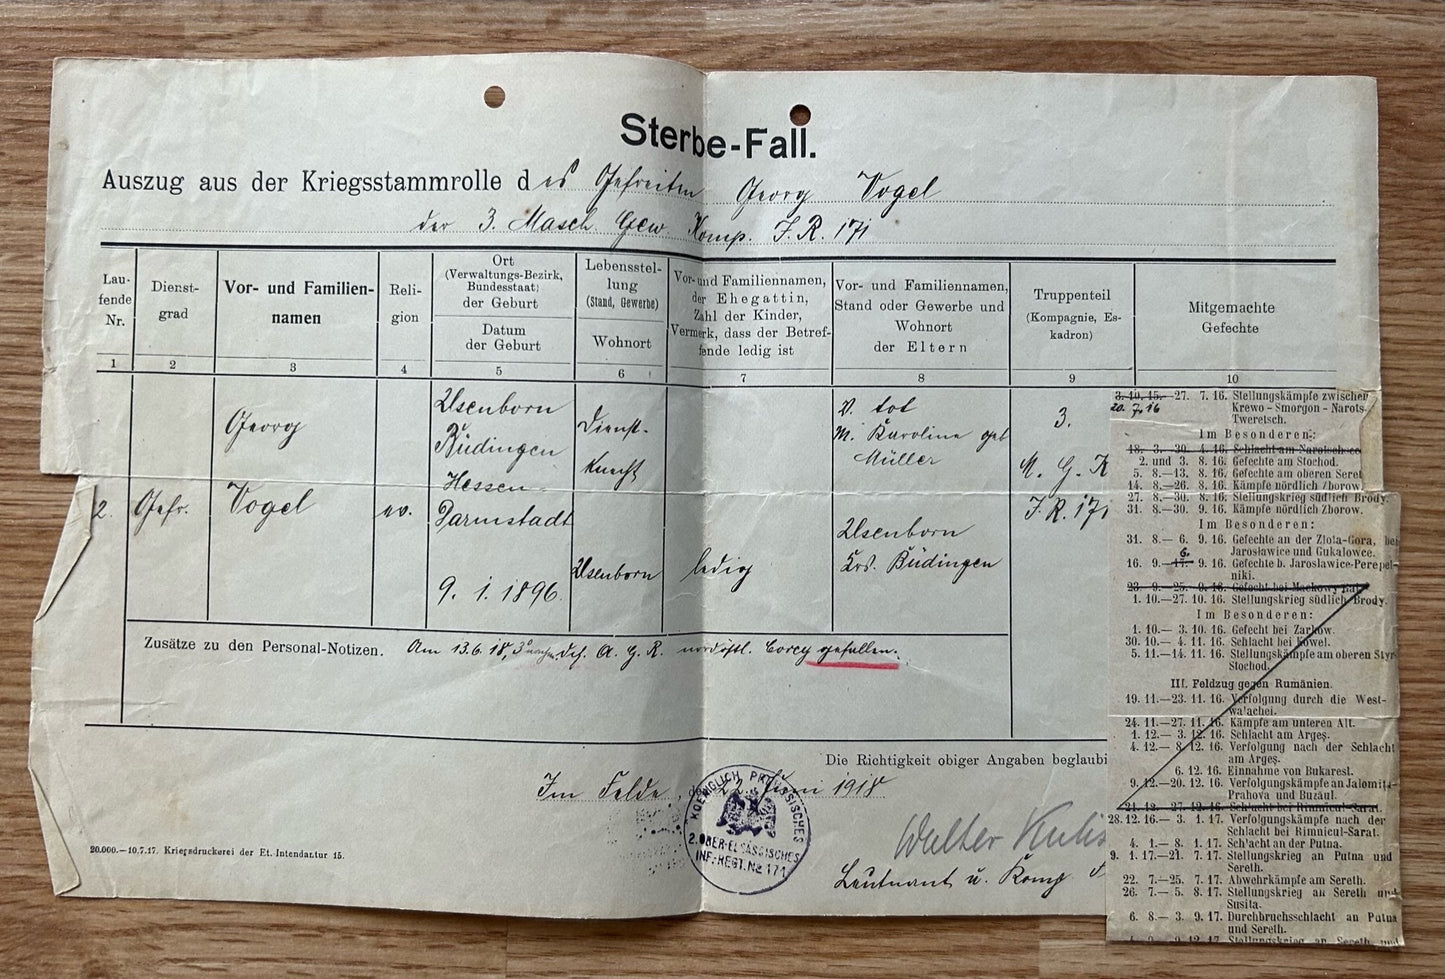 Sterbe-Fall.
Auszug aus der Kriegsstammrolle des Gefreiten Georg Vogel
der 3. Masch. Gew. Komp. I.R. 171
Lau-
fende
Nr.
Dienst-
grad
Vor- und Familien-
namen
Reli-
gion
Ort
(Verwaltungs-Bezirk,
Bundesstaat)
der Geburt
Datum
der Geburt
Lebensstel-
lung
(Stand, Gewerbe)
Wohnort
Vor- und Familiennamen,
der Ehegattin,
Zahl der Kinder,
Vermerk, dass der Betref-
fende ledig ist
Vor- und Familiennamen,
Stand oder Gewerbe und
Wohnort
der Eltern
Truppenteil
(Kompagnie, Es-
kadron)
Mitgemachte
Gefechte
1 2 3 4 5 6 7 8 9 10
2.
Gefr.
Georg
Vogel
ev.
Usenborn
Büdingen
Hessen
Darmstadt
9. 1. 1896.
Dienst-
knecht
Usenborn
ledig
V. tot
M. Karoline geb
Müller
Usenborn
Krs. Büdingen
3.
M. G. K
I.R. 171
3. 10. 15.—27. 7. 16. Stellungskämpfe zwischen
20. 7. 16 Krewo - Smorgon - Narots-
Tweretsch.
Im Besonderen:
18. 3.—30. 4. 16. Schlacht am Narotsch-see
2. und 3. 8. 16. Gefechte am Stochod.
5. 8.—13. 8. 16. Gefechte am oberen Seret
14. 8.—26. 8. 16. Kämpfe nördlich Zborow.
27. 8.—30. 8. 16. Stellungskrieg südlich Brody.
31. 8.—30. 9. 16. Kämpfe nördlich Zborow.
Im Besonderen:
31. 8.— 6. 9. 16. Gefechte an der Zlota-Gora, bei
Jaroslawice und Gukalowce.
6.
16. 9.—17. 9. 16. Gefechte b. Jaroslawice-Perepel-
niki.
23. 9.—25. 9. 16. Gefecht bei Mackowy
1. 10.—27. 10. 16. Stellungskrieg südlich Brody.
Im Besonderen:
1. 10.— 3. 10. 16. Gefecht bei Zarkow.
30. 10.— 4. 11. 16. Schlacht bei Kowel.
5. 11.—14. 11. 16. Stellungskämpfe am oberen Styr-
Stochod.
III. Feldzug gegen Rumänien.
19. 11.—23. 11. 16. Verfolgung durch die West-
walachei.
24. 11.—27. 11. 16. Kämpfe am unteren Alt.
1. 12.— 3. 12. 16. Schlacht am Argeş.
4. 12.— 8. 12. 16. Verfolgung nach der Schlacht
am Argeş.
6. 12. 16. Einnahme von Bukarest.
9. 12.—20. 12. 16. Verfolgungskämpfe an Jalomita-
Prahova und Buzăul.
21. 12.—27. 12. 16. Schlacht bei Rimnicul-Sarat.
28. 12. 16.— 3. 1. 17. Verfolgungskämpfe nach der
Schlacht bei Rimnicul-Sarat.
4. 1.— 8. 1. 17. Schlacht an der Putna.
9. 1. 17.—21. 7. 17. Stellungskrieg an Putna und
Sereth.
22. 7.—25. 7. 17. Abwehrkämpfe am Sereth.
26. 7.— 5. 8. 17. Stellungskrieg an Sereth und
Susita.
6. 8.— 3. 9. 17. Durchbruchsschlacht an Putna
und Sereth.
12. 17. Stellungskrieg an Sereth und
Zusätze zu den Personal-Notizen. Am 13.6.18, 3° A. G. R. nordöstl. Corcy gefallen.
Die Richtigkeit obiger Angaben beglaubi
Im Felde, 22. Juni 1918
KOENIGLICH PREUSSISCHES
2. OBER-ELSÄSSISCHES
INF: REGT. No 171
Walter
Leutnant u. Komp
20.000.—10.7.17. Kriegsdruckerei der Et. Intendantur 15.